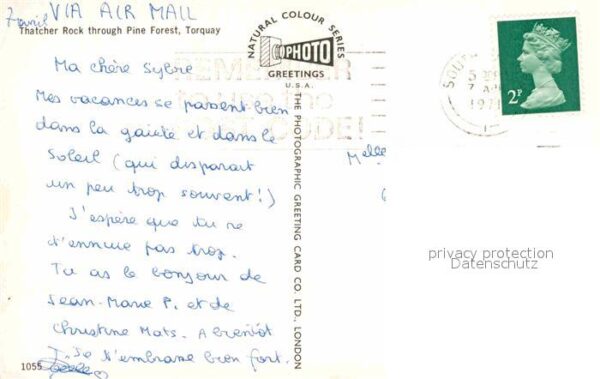 7 avril VIA AIR MAIL
Thatcher Rock through Pine Forest, Torquay
Ma chère
Mes vacances se passent bien
dans la gaieté et dans le
soleil (qui disparait
un peu trop souvent!)
J'espère que tu ne
t'ennuie pas trop.
Tu as le bonjour de
Jean-Marie P. et de
Christine Mats. A bientôt
Je t'embrasse bien fort.
1055
NATURAL COLOUR SERIES
PHOTO
GREETINGS
U.S.A.
THE PHOTOGRAPHIC GREETING CARD CO. LTD., LONDON
REMEMBER
TO USE THE
POST CODE!
Melle
SOUTH
7 AP
197
2P
privacy protection
Datenschutz